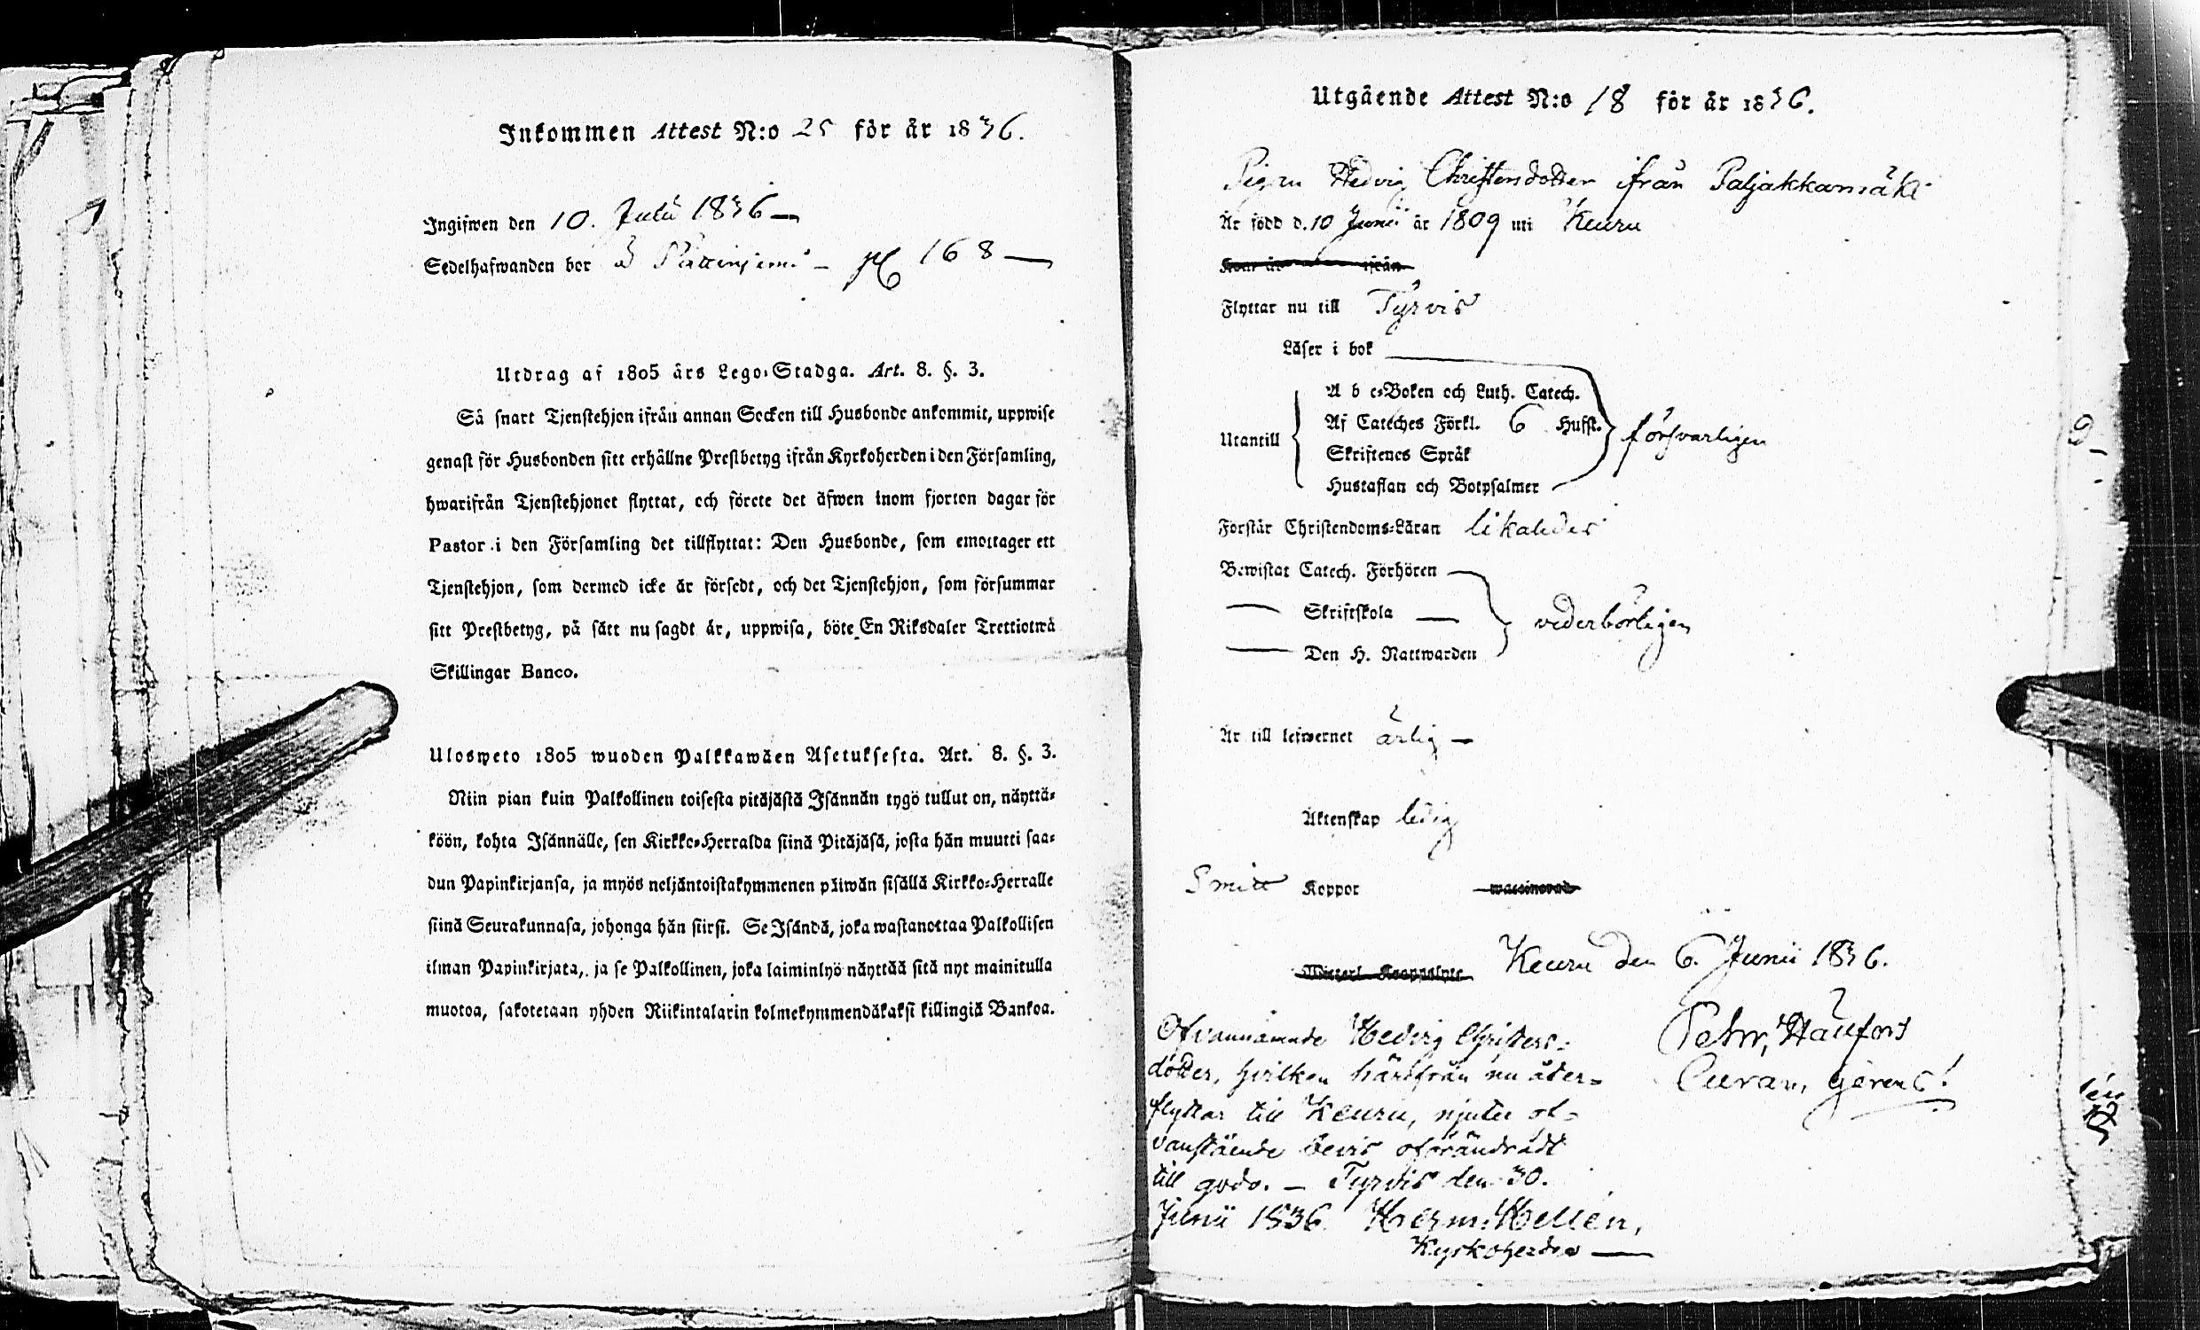 Inkommen Attest N:o 25 för år 1836.
Ingifwen den 10. Julii 1836 —
Sedelhafwanden bor å — 168 —
Utdrag af 1805 års Lego-Stadga. Art. 8. §. 3.
Så snart Tjenstehjon ifrån annan Socken till Husbonde ankommit, uppwise
genast för Husbonden sitt erhållne Prestbetyg ifrån Kyrkoherden i den Församling,
hwarifrån Tjenstehjonet flyttat, och förete det äfwen inom fjorton dagar för
Pastor i den Församling det tillflyttat: Den Husbonde, som emottager ett
Tjenstehjon, som dermed icke är försedt, och det Tjenstehjon, som försummar
sitt Prestbetyg, på sätt nu sagdt är, uppwisa, böte En Riksdaler Trettiotwå
Skillingar Banco.
Ulosweto 1805 wuoden Palkkawäen Asetuksesta. Art. 8. §. 3.
Niin pian kuin Palkollinen toisesta pitäjästä Isännän tygö tullut on, näyttä-
köön, kohta Isännälle, sen Kirkko-Herralda siinä Pitäjäsä, josta hän muutti saa-
dun Papinkirjansa, ja myös neljäntoistakymmenen päiwän sisällä Kirkko-Herralle
siinä Seurakunnasa, johonga hän siirsi. Se Isändä, joka wastanottaa Palkollisen
ilman Papinkirjata, ja se Palkollinen, joka laiminlyö näyttää sitä nyt mainitulla
muotoa, sakotetaan yhden Riikintalarin kolmekymmendäkaksi killingiä Bankoa.
Utgående Attest N:o 18 för år 1836.
Pigan Hedvig Christersdotter ifrån Paljakkamäki
Är född d. 10 Junii år 1809 uti Keuru
Kom år ifrån
Flyttar nu till Tyrvis
Läser i bok
A b c-Boken och Luth. Catech.
Af Cateches Förkl. 6 Hufst.
Utantill försvarligen
Skriftenes Språk
Hustaflan och Botpsalmer
Förstår Christendoms-Läran likaledes
Bewistat Catech. Förhören
— Skriftskola — vederbörligen
— Den H. Nattwarden
Är till lefwernet ärlig —
Äktenskap ledig
Smitt Koppor waccinerad
Keuru den 6. Junii 1836.
Petr,
gerens!
Ofvannämnde Hedvig Christers-
dotter, hvilken härifrån nu åter-
flyttar till Keuru, njuter of-
vanstående bevis oförändradt
till godo. — Tyrvis den 30.
Junii 1836. Herm: Hellén,
Kyrkoherde —